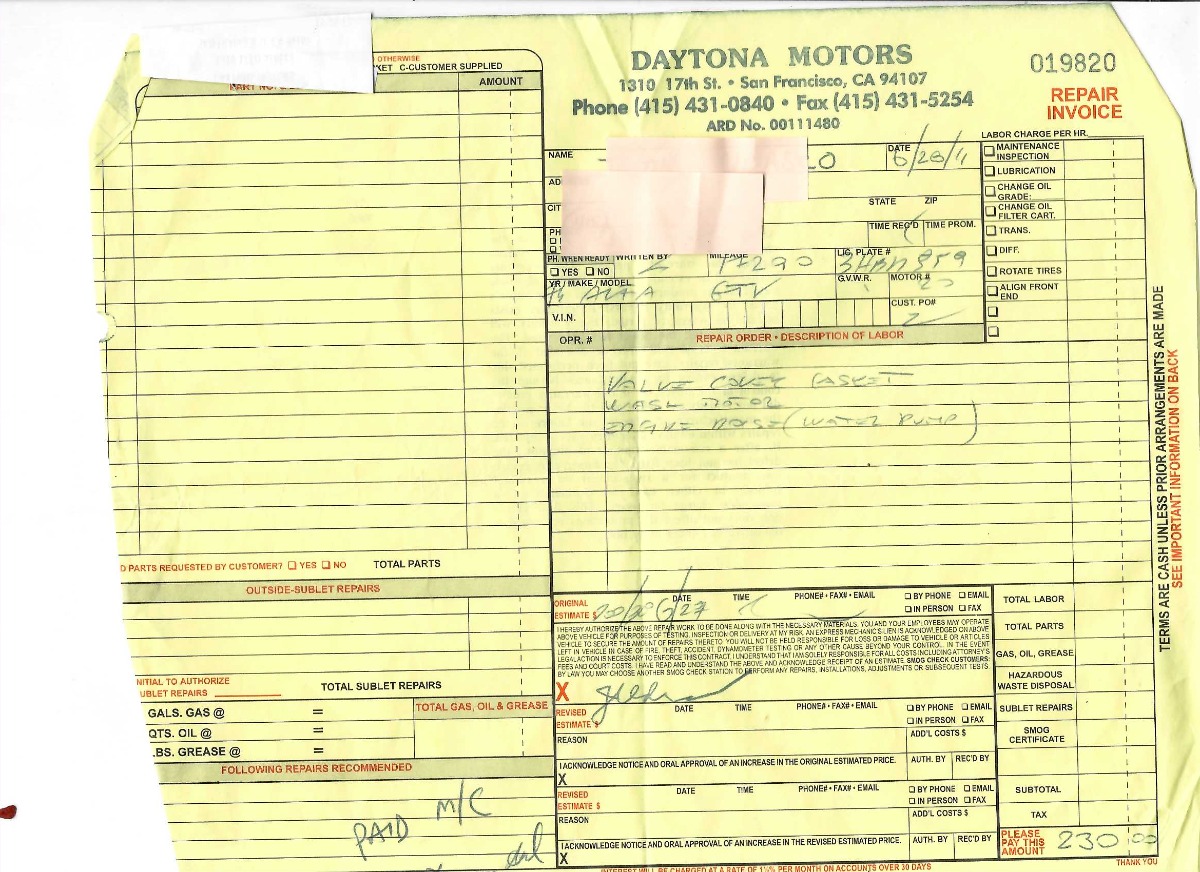 DAYTONA MOTORS
1310 17th St. • San Francisco, CA 94107
Phone (415) 431-0840 • Fax (415) 431-5254
ARD No. 00111480
019820
REPAIR
INVOICE
OTHERWISE
KET C-CUSTOMER SUPPLIED
AMOUNT
D PARTS REQUESTED BY CUSTOMER? YES NO TOTAL PARTS
OUTSIDE-SUBLET REPAIRS
NITIAL TO AUTHORIZE
UBLET REPAIRS
TOTAL SUBLET REPAIRS
GALS. GAS @ =
QTS. OIL @ =
BS. GREASE @ =
TOTAL GAS, OIL & GREASE
FOLLOWING REPAIRS RECOMMENDED
PAID M/C
NAME
DATE 6/28/11
AD
CIT
STATE ZIP
PH
TIME REC'D TIME PROM.
PH. WHEN READY YES NO
WRITTEN BY
MILEAGE
LIC. PLATE #
YR / MAKE / MODEL ALFA GTV
G.V.W.R.
MOTOR # 20
V.I.N.
CUST. PO#
LABOR CHARGE PER HR.
MAINTENANCE INSPECTION
LUBRICATION
CHANGE OIL GRADE:
CHANGE OIL FILTER CART.
TRANS.
DIFF.
ROTATE TIRES
ALIGN FRONT END
OPR. # REPAIR ORDER • DESCRIPTION OF LABOR
VALVE COVER GASKET
WASH MOTOR
ENGINE NOISE (WATER PUMP)
TERMS ARE CASH UNLESS PRIOR ARRANGEMENTS ARE MADE
SEE IMPORTANT INFORMATION ON BACK
ORIGINAL ESTIMATE $ DATE 6/27 TIME PHONE# • FAX# • EMAIL BY PHONE EMAIL IN PERSON FAX
I HEREBY AUTHORIZE THE ABOVE REPAIR WORK TO BE DONE ALONG WITH THE NECESSARY MATERIALS. YOU AND YOUR EMPLOYEES MAY OPERATE
ABOVE VEHICLE FOR PURPOSES OF TESTING, INSPECTION OR DELIVERY AT MY RISK. AN EXPRESS MECHANIC'S LIEN IS ACKNOWLEDGED ON ABOVE
VEHICLE TO SECURE THE AMOUNT OF REPAIRS THERETO. YOU WILL NOT BE HELD RESPONSIBLE FOR LOSS OR DAMAGE TO VEHICLE OR ARTICLES
LEFT IN VEHICLE IN CASE OF FIRE, THEFT, ACCIDENT, DYNAMOMETER TESTING OR ANY OTHER CAUSE BEYOND YOUR CONTROL. IN THE EVENT
LEGAL ACTION IS NECESSARY TO ENFORCE THIS CONTRACT, I UNDERSTAND THAT I AM SOLELY RESPONSIBLE FOR ALL COSTS INCLUDING ATTORNEY'S
FEES AND COURT COSTS. I HAVE READ AND UNDERSTAND THE ABOVE AND ACKNOWLEDGE RECEIPT OF AN ESTIMATE. SMOG CHECK CUSTOMERS:
BY LAW YOU MAY CHOOSE ANOTHER SMOG CHECK STATION TO PERFORM ANY REPAIRS, INSTALLATIONS, ADJUSTMENTS OR SUBSEQUENT TESTS.
X
REVISED ESTIMATE $ DATE TIME PHONE# • FAX# • EMAIL BY PHONE EMAIL IN PERSON FAX
REASON ADD'L COSTS $
I ACKNOWLEDGE NOTICE AND ORAL APPROVAL OF AN INCREASE IN THE ORIGINAL ESTIMATED PRICE. AUTH. BY REC'D BY
X
REVISED ESTIMATE $ DATE TIME PHONE# • FAX# • EMAIL BY PHONE EMAIL IN PERSON FAX
REASON ADD'L COSTS $
I ACKNOWLEDGE NOTICE AND ORAL APPROVAL OF AN INCREASE IN THE REVISED ESTIMATED PRICE. AUTH. BY REC'D BY
X
TOTAL LABOR
TOTAL PARTS
GAS, OIL, GREASE
HAZARDOUS WASTE DISPOSAL
SUBLET REPAIRS
SMOG CERTIFICATE
SUBTOTAL
TAX
PLEASE PAY THIS AMOUNT 230 00
THANK YOU
INTEREST WILL BE CHARGED AT A RATE OF 1½% PER MONTH ON ACCOUNTS OVER 30 DAYS